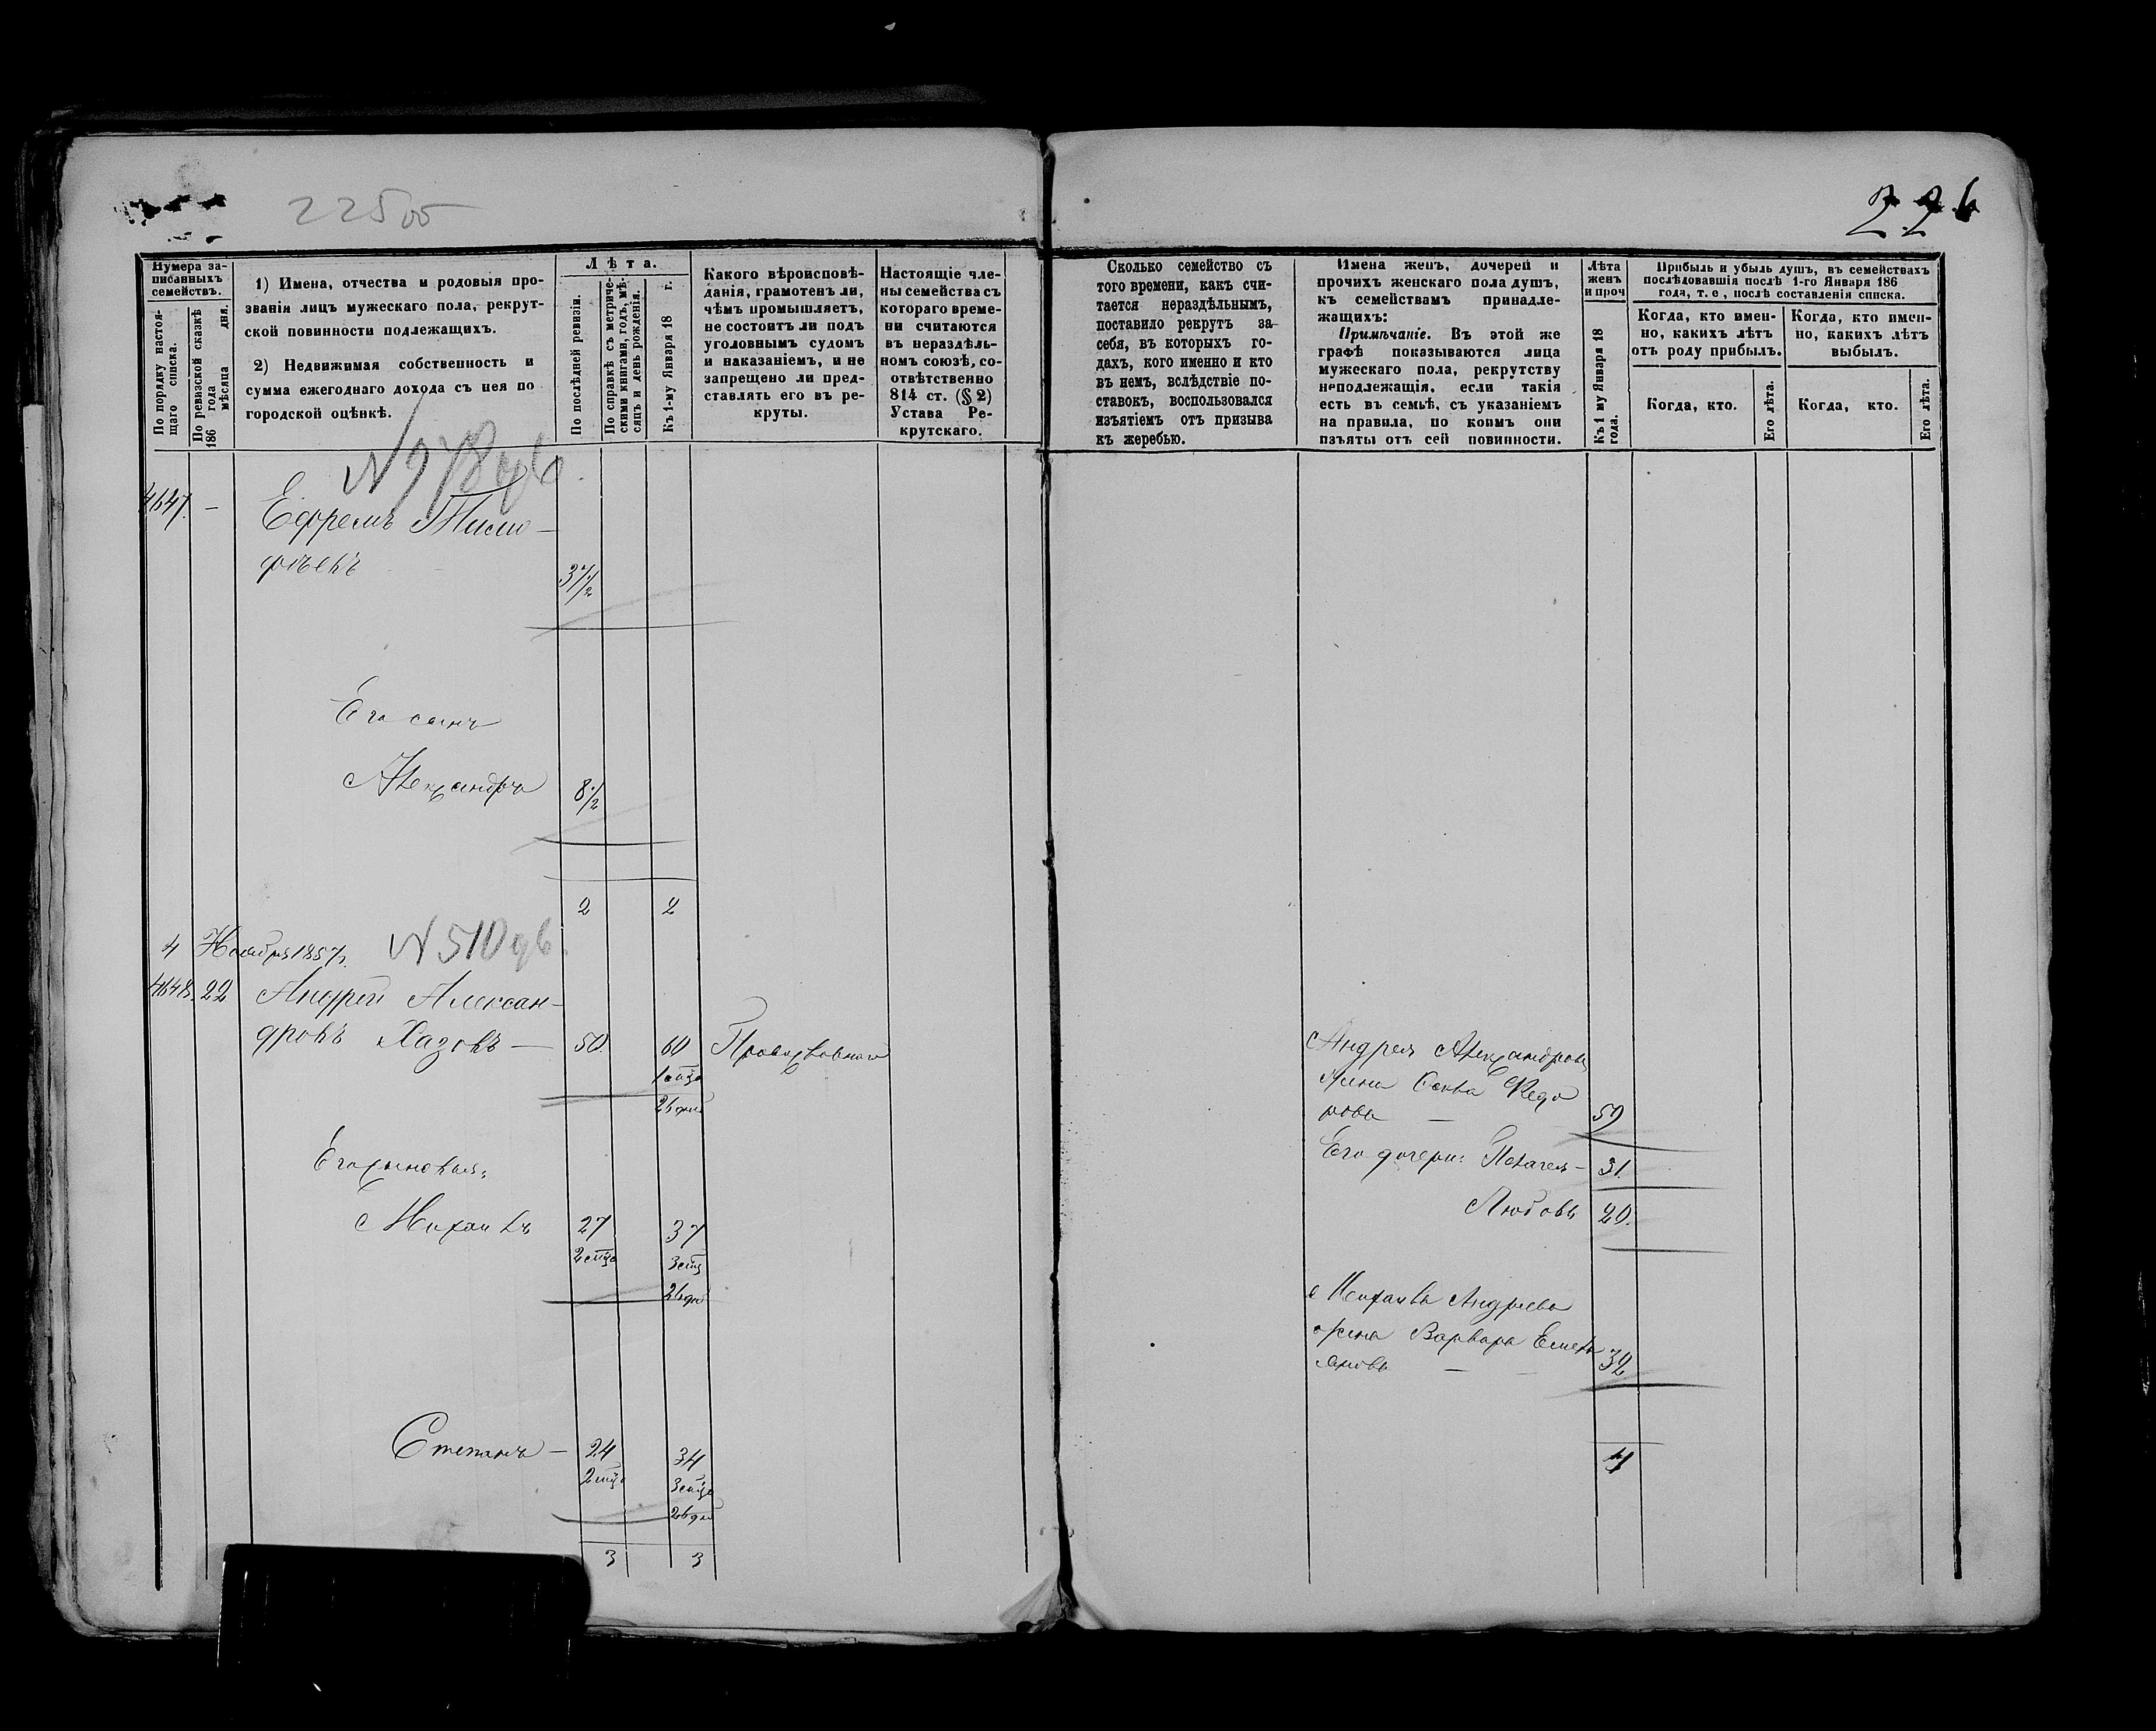 22500
226
Нумера за-
писанныхъ
семействъ.
По порядку настоя-
щаго списка.
По ревизской сказкѣ
186 года дня.
мѣсяца
1) Имена, отчества и родовыя про-
званія лицъ мужескаго пола, рекрут-
ской повинности подлежащихъ.
2) Недвижимая собственность и
сумма ежегоднаго дохода съ нея по
городской оцѣнкѣ.
Лѣта.
По послѣдней ревизіи.
По справкѣ съ метриче-
скими книгами, годъ, мѣ-
сяцъ и день рожденія.
Къ 1-му Января 18 г.
Какого вѣроисповѣ-
данія, грамотенъ ли,
чѣмъ промышляетъ,
не состоитъ ли подъ
уголовнымъ судомъ
и наказаніемъ, и не
запрещено ли пред-
ставлять его въ ре-
круты.
Настоящіе чле-
ны семейства съ
котораго време-
ни считаются
въ нераздѣль-
номъ союзѣ, со-
отвѣтственно
814 ст. (§ 2)
Устава Ре-
крутскаго.
Сколько семейство съ
того времени, какъ счи-
тается нераздѣльнымъ,
поставило рекрутъ за
себя, въ которыхъ го-
дахъ, кого именно и кто
въ немъ, вслѣдствіе по-
ставокъ, воспользовался
изъятіемъ отъ призыва
къ жеребью.
Имена женъ, дочерей и
прочихъ женскаго пола душъ,
къ семействамъ принадле-
жащихъ:
Примѣчаніе. Въ этой же
графѣ показываются лица
мужескаго пола, рекрутству
неподлежащія, если такія
есть въ семьѣ, съ указаніемъ
на правила, по коимъ они
изъяты отъ сей повинности.
Лѣта
женъ
и проч
Къ 1 му Января 18
года.
Прибыль и убыль душъ, въ семействахъ
послѣдовавшія послѣ 1-го Января 186
года, т. е, послѣ составленія списка.
Когда, кто имен-
но, какихъ лѣтъ
отъ роду прибылъ.
Когда, кто.
Его лѣта.
Когда, кто имен-
но, какихъ лѣтъ
выбылъ.
Когда, кто.
Его лѣта.
4647. — Ефремъ Тимо-
фѣевъ 37½
Его сынъ
Александръ 8½
2 2
4 Ноября 1857г. N 510
4648. 22 Андрей Алексан-
дровъ Хазовъ — 50. 60 Православнаго
26 дня
Его сыновья:
Михаилъ 27 37
26 дн
Степанъ — 24 34
26 дн
3 3
Андрея Александрова
жена Федо
рова — 59
Его дочери: Пелагея — 31.
Любовь 20.
Михаила Андреева
жена Варвара Емель
янова — 32
4